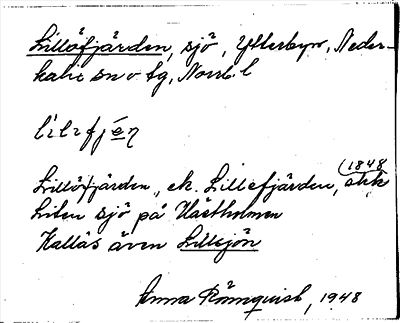 Lillöfjärden, sjö, Ytterbyn, Neder-
kalix sn o tg, Norrb. l
lilifjén
Lillöfjärden, ek. Lillefjärden, (1848
Liten sjö på Hästholmen
Kallas även Lillsjön
Anna Rönnqvist, 1948